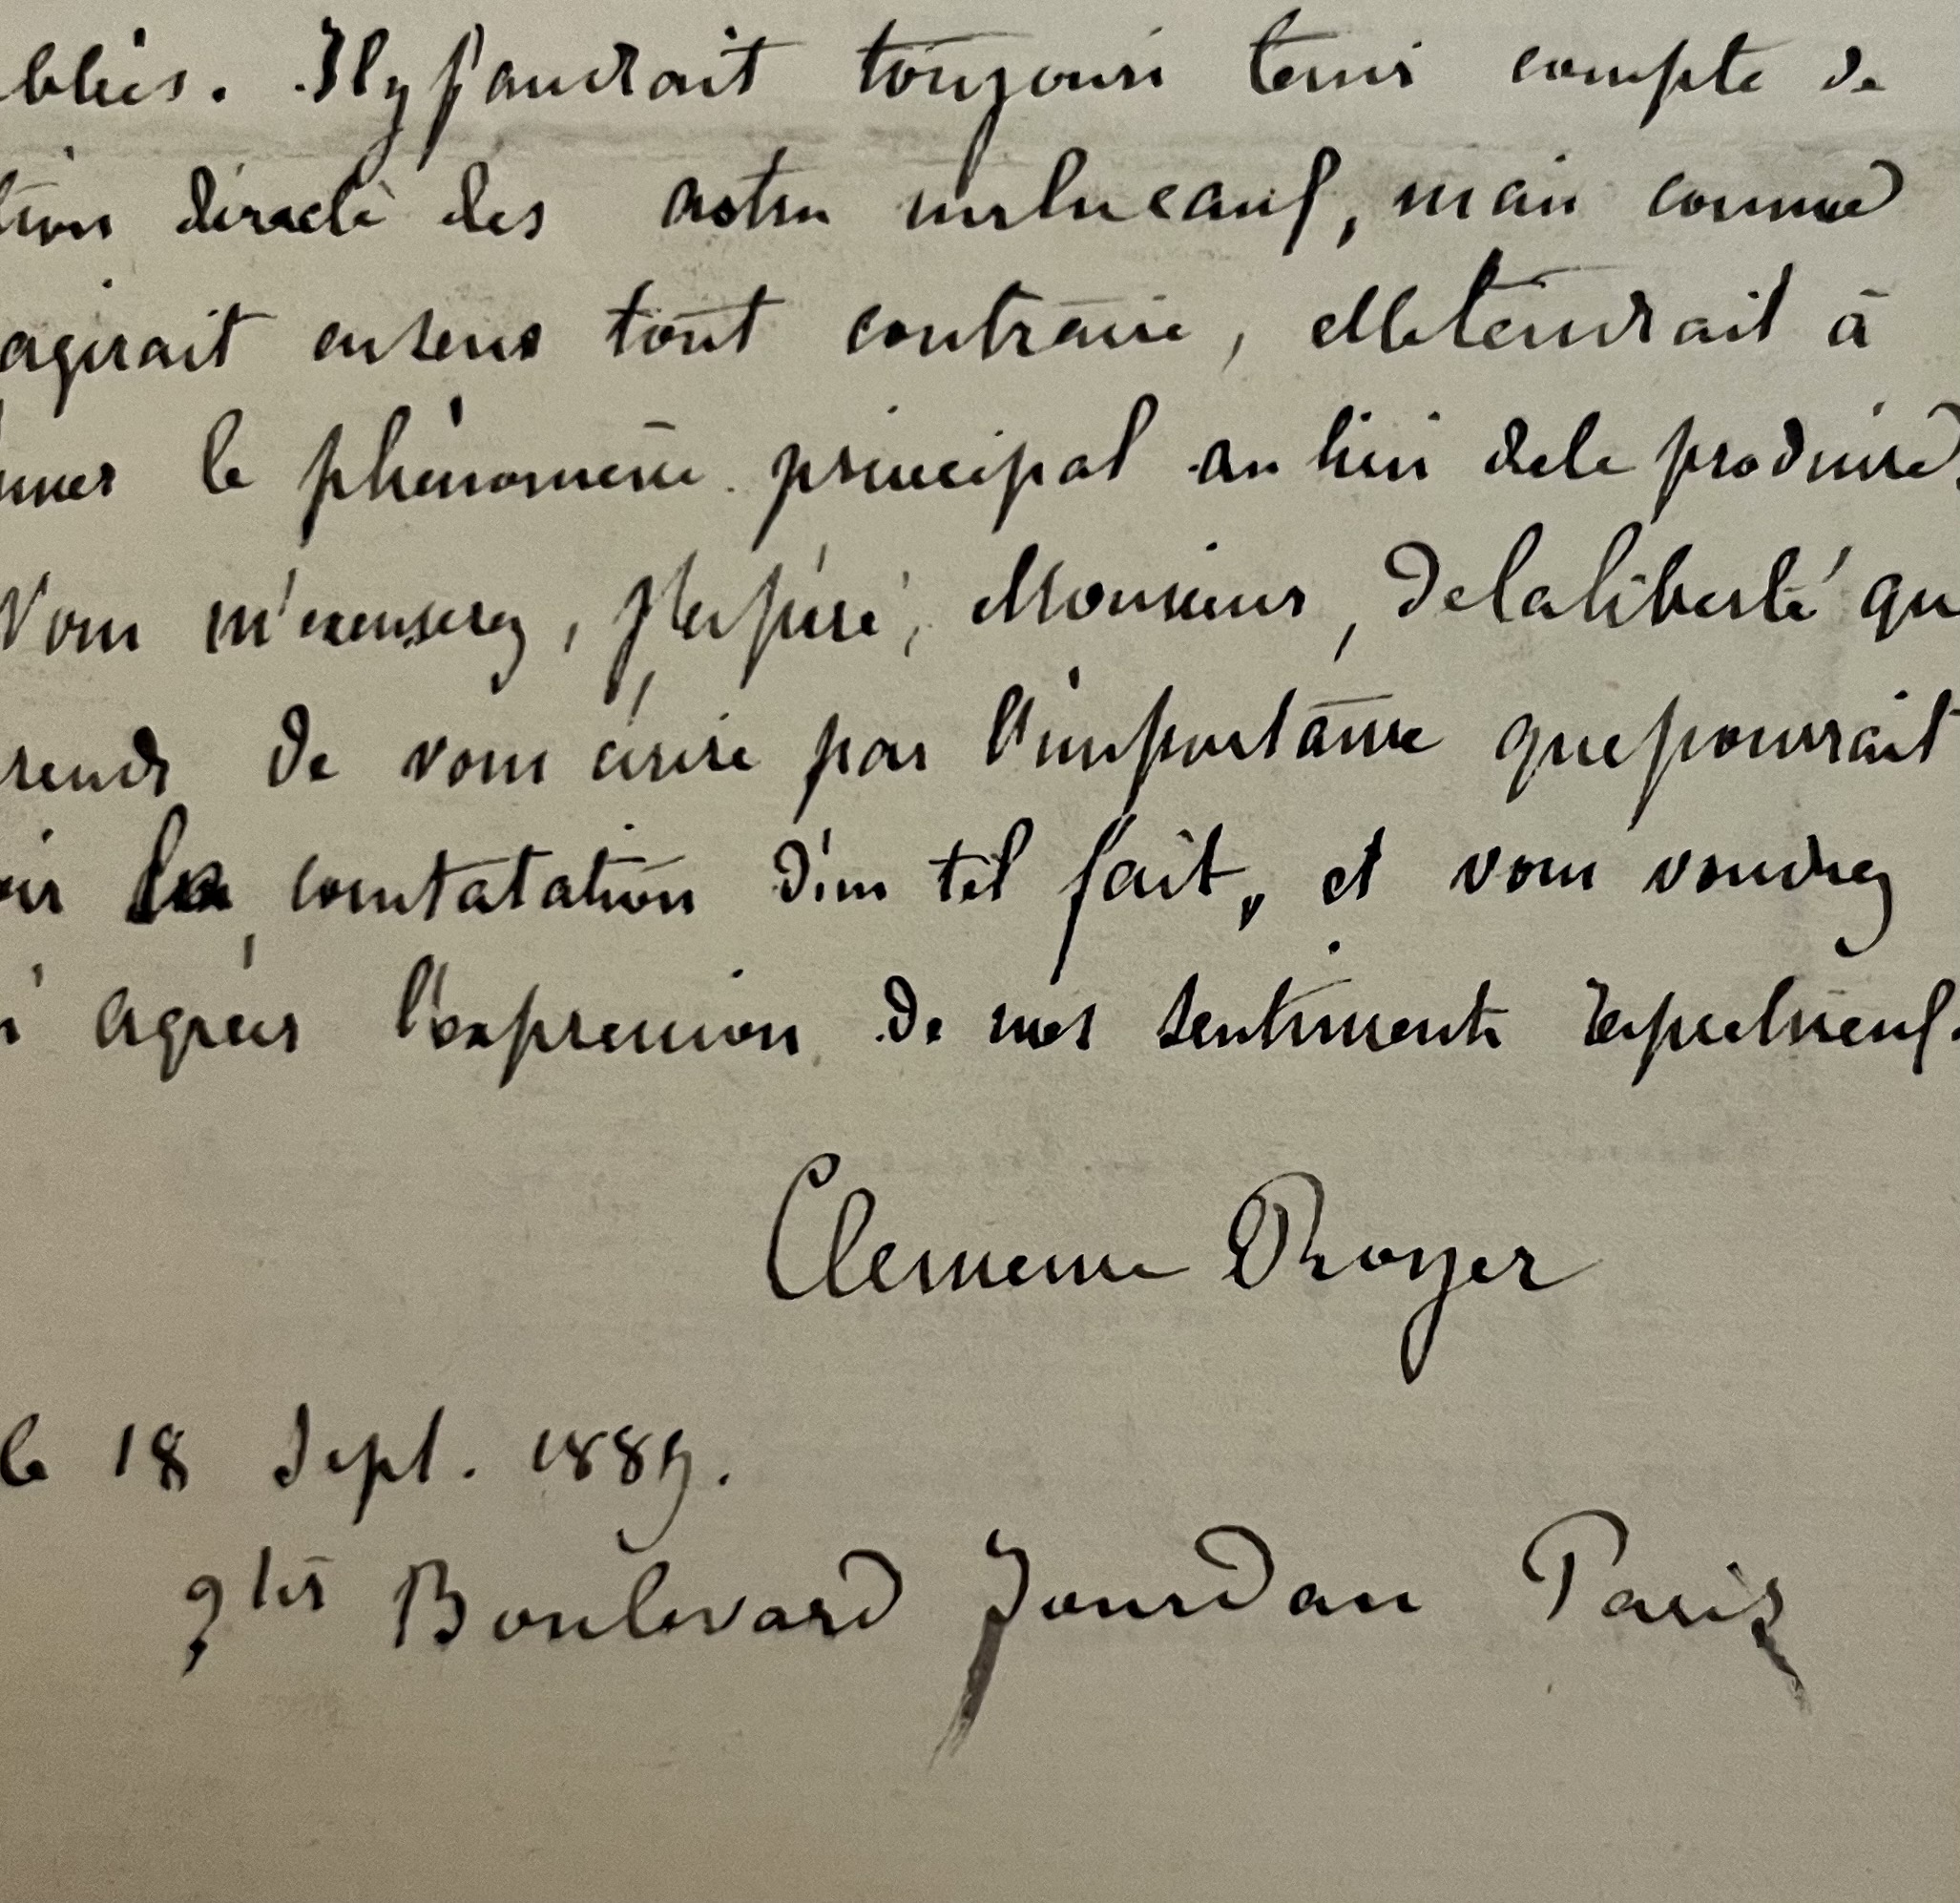 bliés. Il y faudrait toujours tenir compte de
tion directe des astres , mais comme
agirait en sens tout contraire, elle tendrait à
le phénomène principal au lieu de le produire.
Vous m'excuserez, j'espère, Monsieur, de la liberté qu
rends de vous écrire par l'importance que pourrait
oir la constatation d'un tel fait, et vous voudrez
agréer l'expression de mes sentiments respectueux.
Clemence Royer
le 18 Sept. 1889.
9 ter Boulevard Jourdan Paris